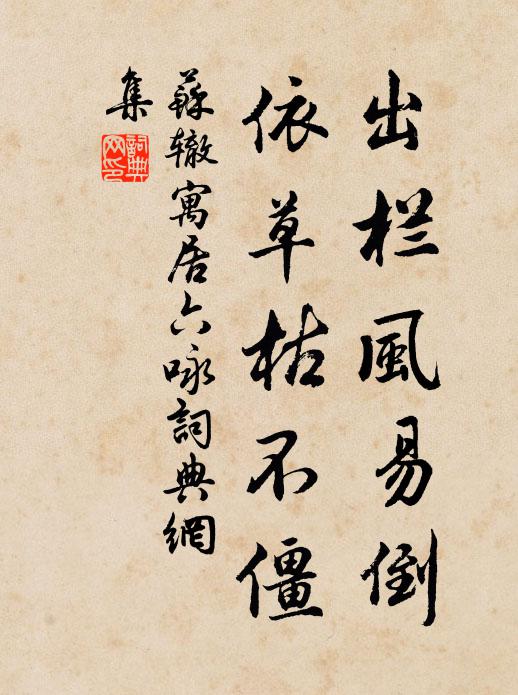 出栏風易倒
依草枯不僵
蘇辙寓居六咏詞典網
集
詞典
网印